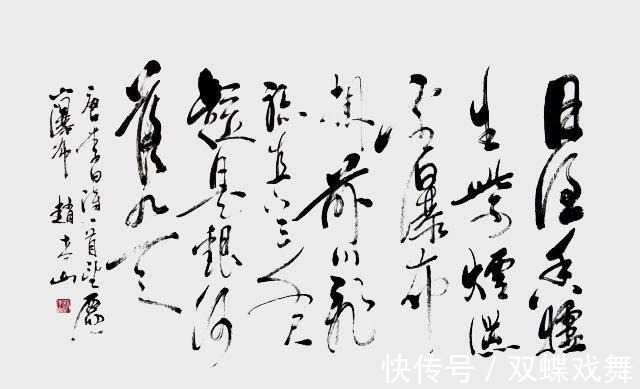 日照香爐
生紫煙遥
看瀑布
掛前川飛
流直下三千尺
疑是銀河
落九天
唐李白詩一首望廬
山瀑布 趙 山
快传号 / 双蝶戏舞